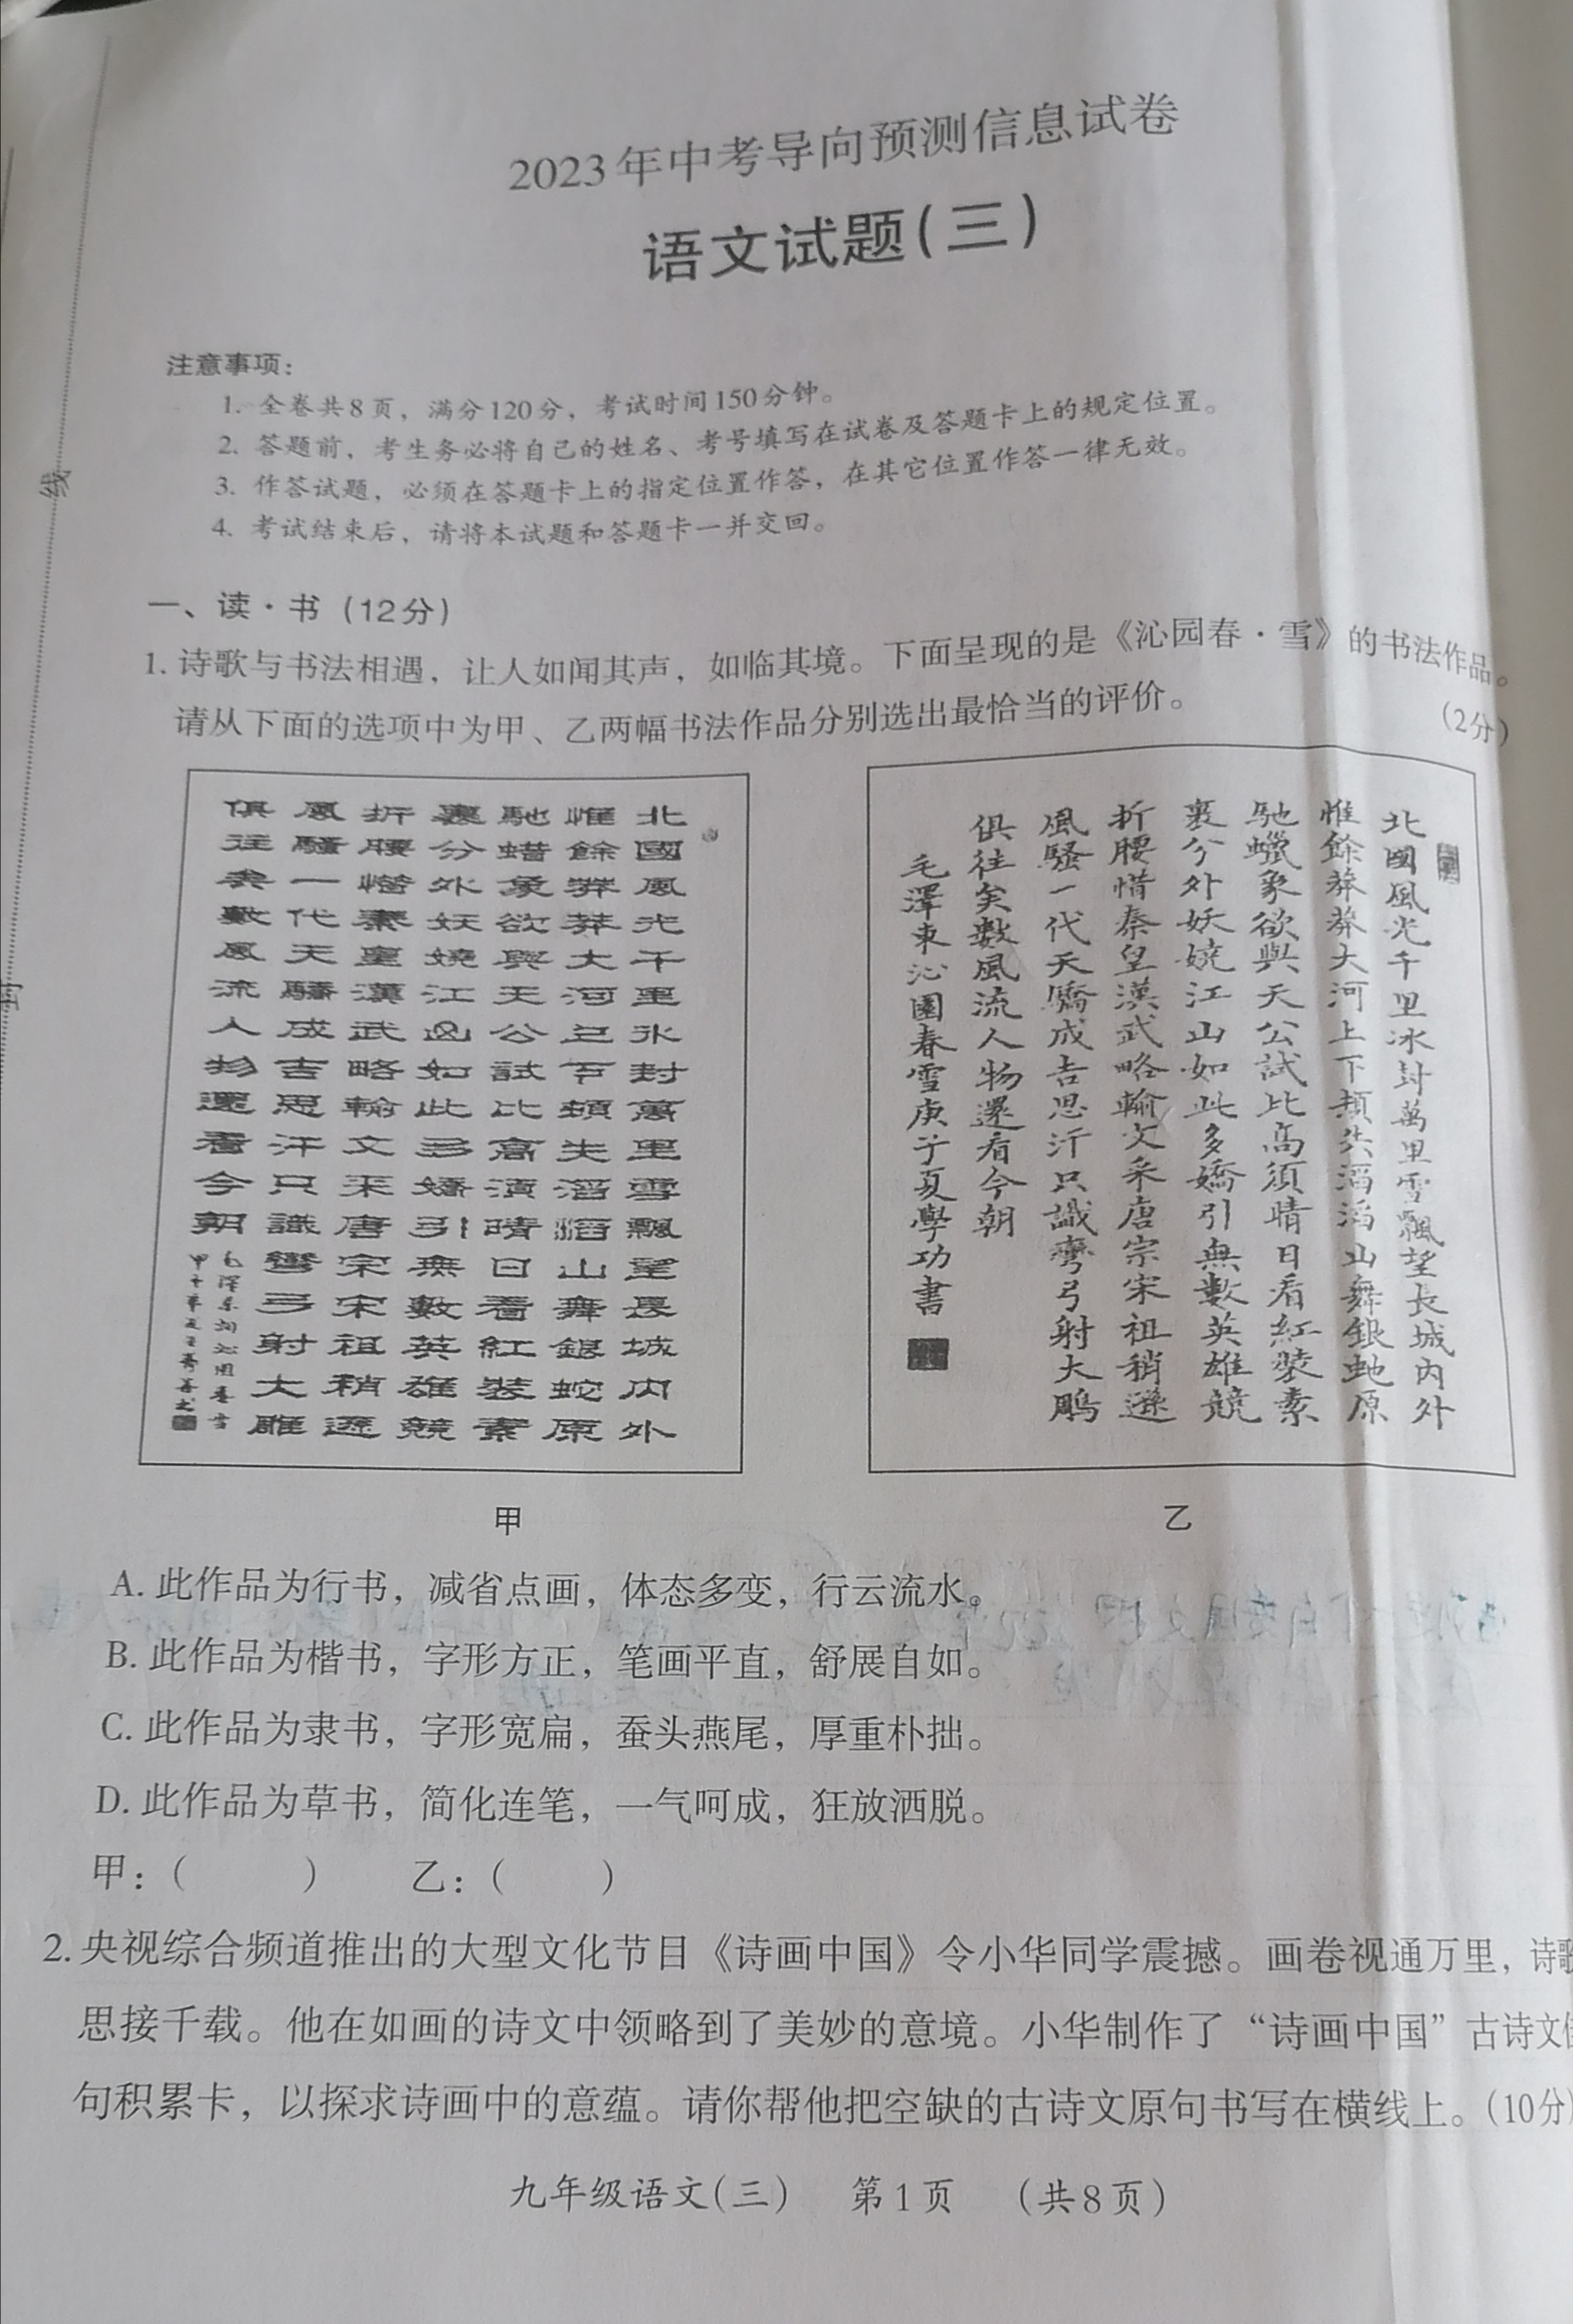 2023年中考导向预测信息试卷
语文试题(三)
注意事项：
1. 全卷共8页，满分120分，考试时间150分钟。
2. 答题前，考生务必将自己的姓名、考号填写在试卷及答题卡上的规定位置。
3. 作答试题，必须在答题卡上的指定位置作答，在其它位置作答一律无效。
4. 考试结束后，请将本试题和答题卡一并交回。
线
一、读·书（12分）
1. 诗歌与书法相遇，让人如闻其声，如临其境。下面呈现的是《沁园春·雪》的书法作品。
请从下面的选项中为甲、乙两幅书法作品分别选出最恰当的评价。（2分）
北國風光千里氷封萬里雪飄望長城内外
惟餘莽莽大河上下頓失滔滔山舞銀蛇原
馳蜡象欲與天公試比高須晴日看紅裝素
裹分外妖嬈江山如此多嬌引無數英雄競
折腰惜秦皇漢武略輸文采唐宗宋祖稍遜
風騷一代天驕成吉思汗只識彎弓射大雕
俱往矣數風流人物還看今朝
甲
北國風光千里冰封萬里雪飄望長城内外
惟餘莽莽大河上下頓失滔滔山舞銀蛇原
馳蠟象欲與天公試比高須晴日看紅裝素
裹分外妖嬈江山如此多嬌引無數英雄競
折腰惜秦皇漢武略輸文采唐宗宋祖稍遜
風騷一代天驕成吉思汗只識彎弓射大鵰
俱往矣數風流人物還看今朝
毛澤東沁園春雪庚子夏學功書
乙
A. 此作品为行书，减省点画，体态多变，行云流水。
B. 此作品为楷书，字形方正，笔画平直，舒展自如。
C. 此作品为隶书，字形宽扁，蚕头燕尾，厚重朴拙。
D. 此作品为草书，简化连笔，一气呵成，狂放洒脱。
甲：（　　） 乙：（　　）
2. 央视综合频道推出的大型文化节目《诗画中国》令小华同学震撼。画卷视通万里，诗歌
思接千载。他在如画的诗文中领略到了美妙的意境。小华制作了“诗画中国”古诗文
句积累卡，以探求诗画中的意蕴。请你帮他把空缺的古诗文原句书写在横线上。（10分）
九年级语文(三) 第1页 （共8页）